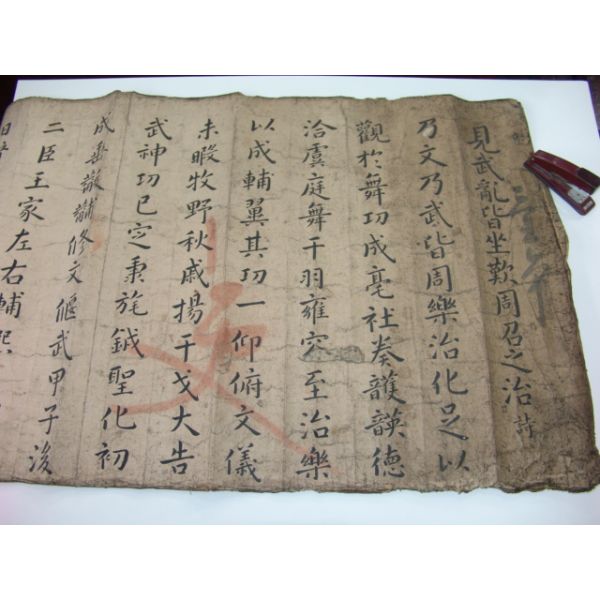 見武亂皆坐歎周召之治 詩
乃文乃武皆周樂治化足以
觀於舞功成亳社奏頀韺德
洽虞庭舞干羽雍容至治樂
以成輔翼其功一仰俯文儀
未暇牧野秋戚揚干戈大告
武神功已定秉旄鉞聖化初
成
修文偃武甲子後
二臣王家左右輔